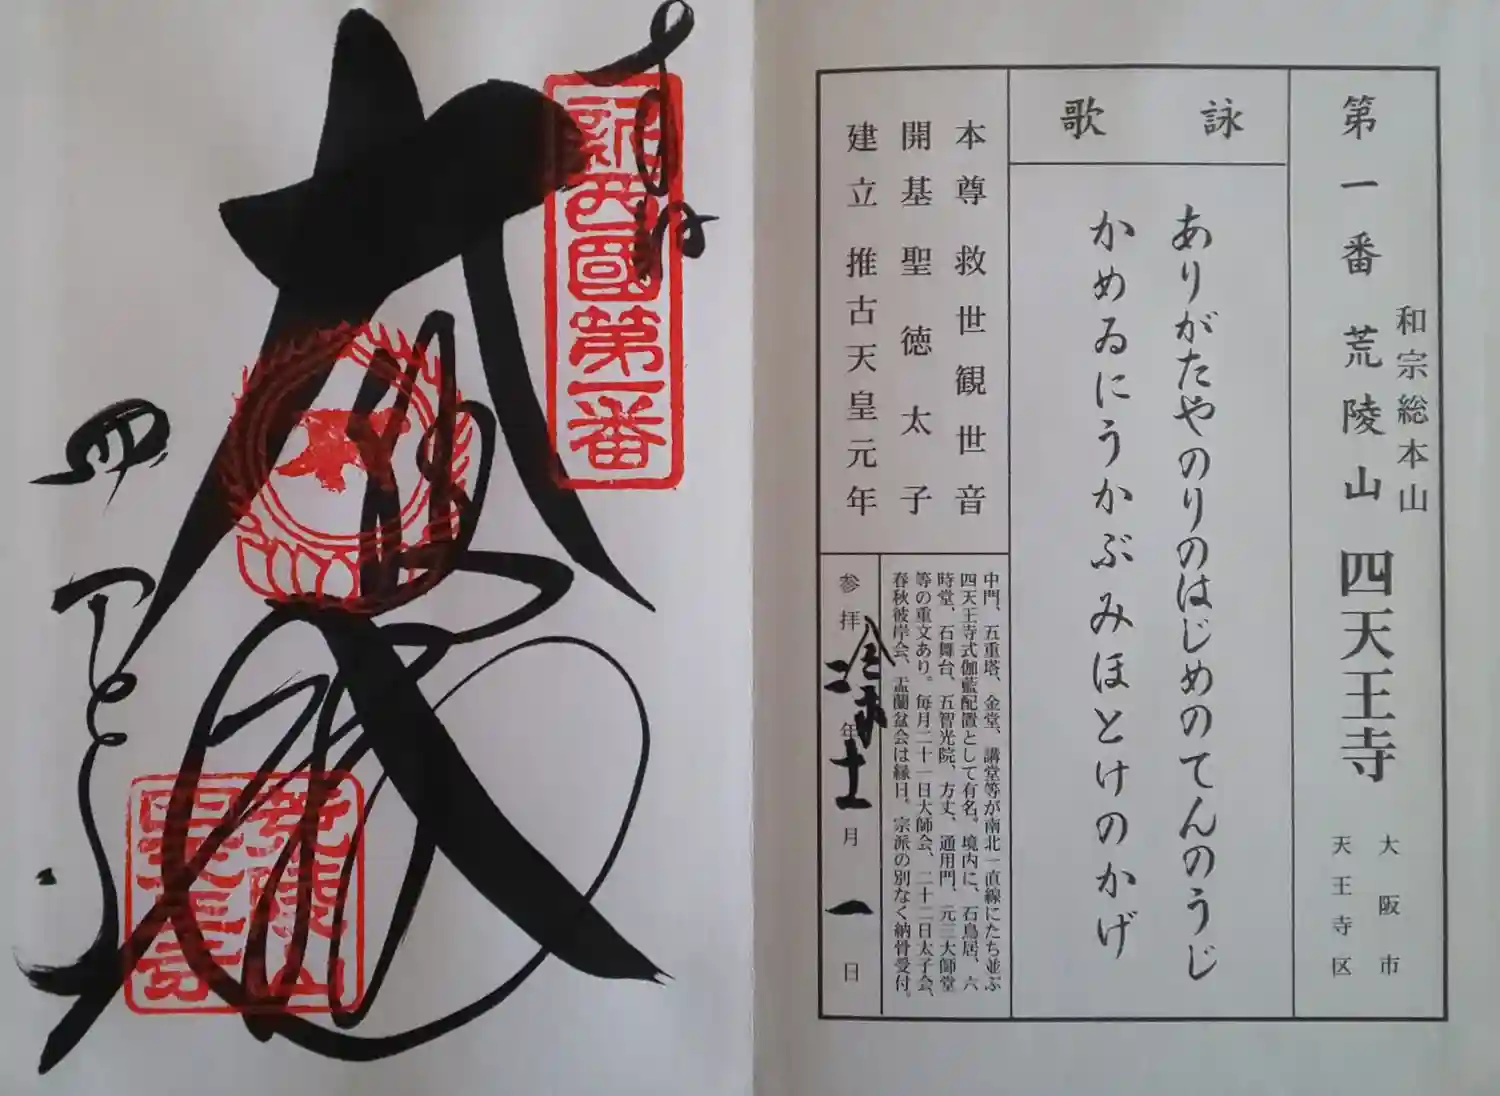 第一番 荒陵山 四天王寺
和宗総本山
大阪市
天王寺区
詠歌
ありがたやのりのはじめのてんのうじ
かめゐにうかぶみほとけのかげ
本尊 救世観世音
開基 聖徳太子
建立 推古天皇元年
中門、五重塔、金堂、講堂等が南北一直線にたち並ぶ
四天王寺式伽藍配置として有名。境内に、石鳥居、六
時堂、石舞台、五智光院、方丈、通用門、元三大師堂
等の重文あり。毎月二十一日大師会、二十二日太子会、
春秋彼岸会、盂蘭盆会は縁日。宗派の別なく納骨受付。
参拝 令和二年十一月一日
新西國第一番
荒陵山
四天王寺